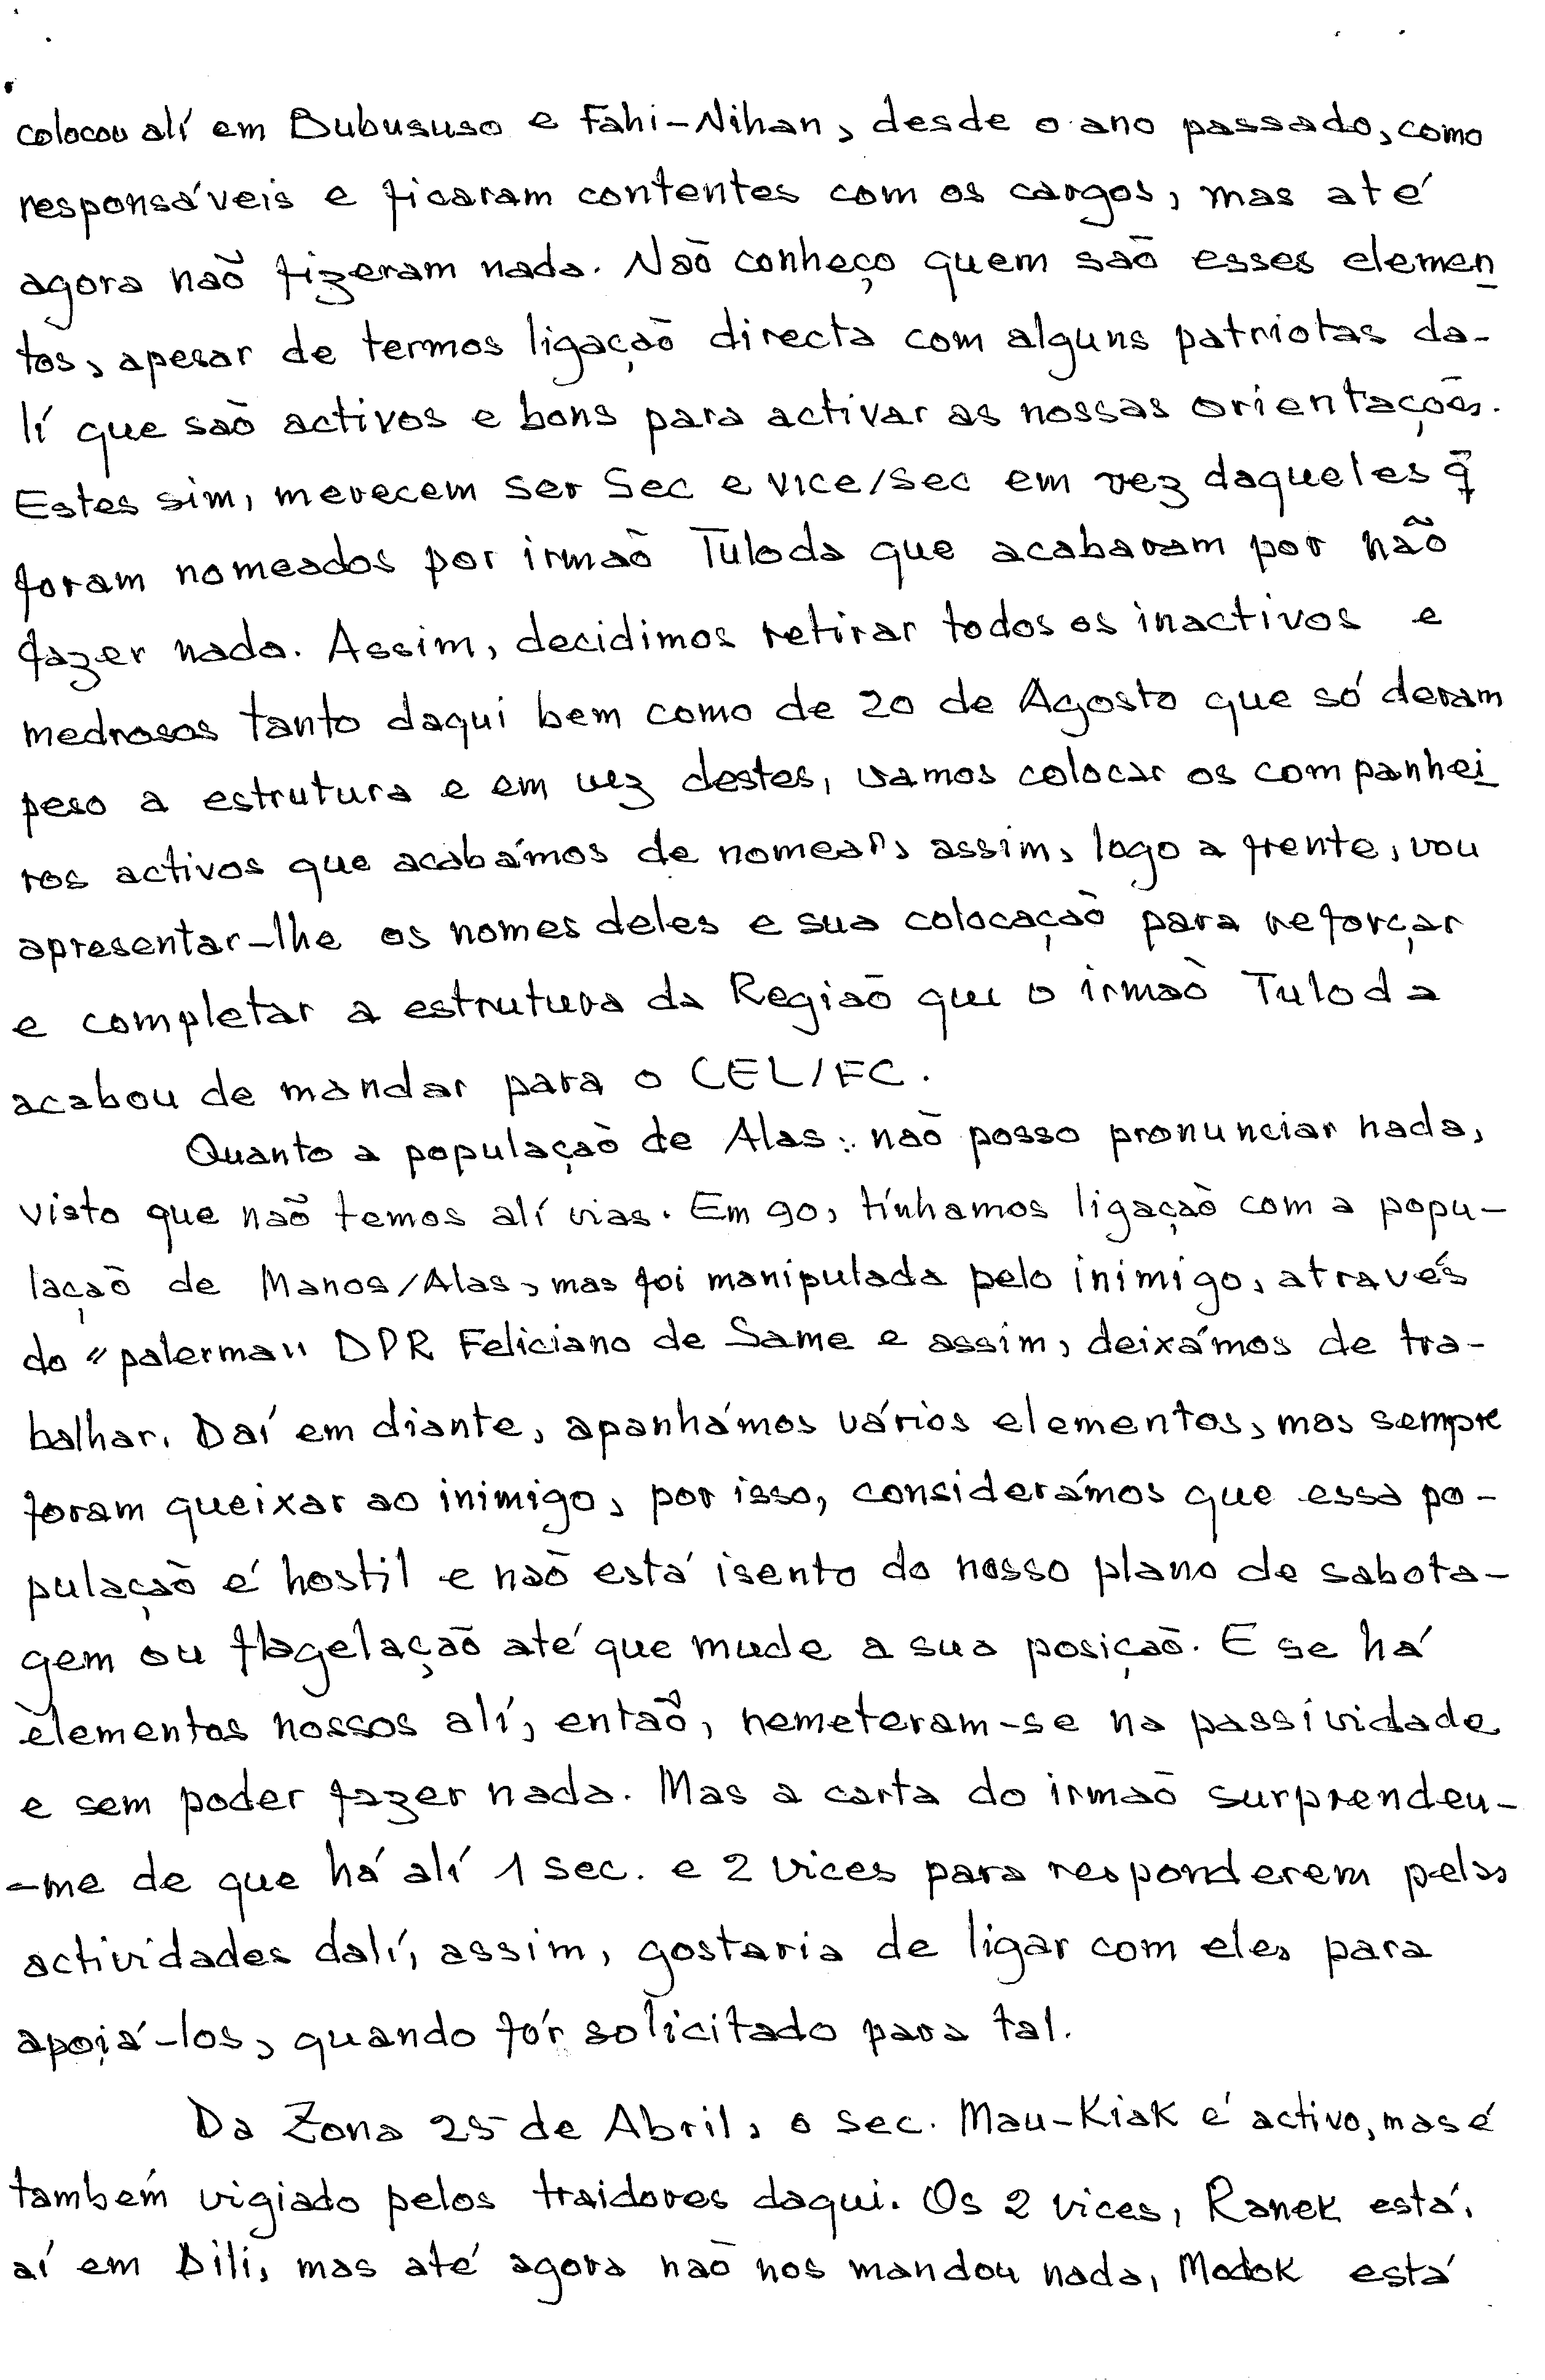 colocou alí em Bubususo e Fahi-Nihan, desde o ano passado, como
responsáveis e ficaram contentes com os cargos, mas até
agora não fizeram nada. Não conheço quem são esses elemen
tos, apesar de termos ligação directa com alguns patriotas da-
lí que são activos e bons para activar as nossas orientações.
Estes sim, merecem ser Sec e vice/sec em vez daqueles q̃
foram nomeados por irmão Tuloda que acabaram por não
fazer nada. Assim, decidimos retirar todos os inactivos e
medrosos tanto daqui bem como de 20 de Agosto que só deram
peso a estrutura e em vez destes, vamos colocar os companhei
ros activos que acabámos de nomear, assim, logo a frente, vou
apresentar-lhe os nomes deles e sua colocação para reforçar
e completar a estrutura da Região que o irmão Tuloda
acabou de mandar para o CEL/FC.
Quanto a população de Alas: não posso pronunciar nada,
visto que não temos alí vias. Em 90, tínhamos ligação com a popu-
lação de Manos/Alas, mas foi manipulada pelo inimigo, através
do "palerma" DPR Feliciano de Same e assim, deixámos de tra-
balhar. Daí em diante, apanhámos vários elementos, mas sempre
foram queixar ao inimigo, por isso, considerámos que essa po-
pulação é hostil e não está isento do nosso plano de sabota-
gem ou flagelação até que mude a sua posição. E se há
elementos nossos alí, então, remeteram-se na passividade
e sem poder fazer nada. Mas a carta do irmão surprendeu-
-me de que há alí 1 sec. e 2 vices para responderem pelas
actividades dalí, assim, gostaria de ligar com eles para
apoiá-los, quando fôr solicitado para tal.
Da Zona 25 de Abril, o sec. Mau-Kiak é activo, mas é
também vigiado pelos traidores daqui. Os 2 vices, Ranek está,
aí em Dili, mas até agora não nos mandou nada, Modok está